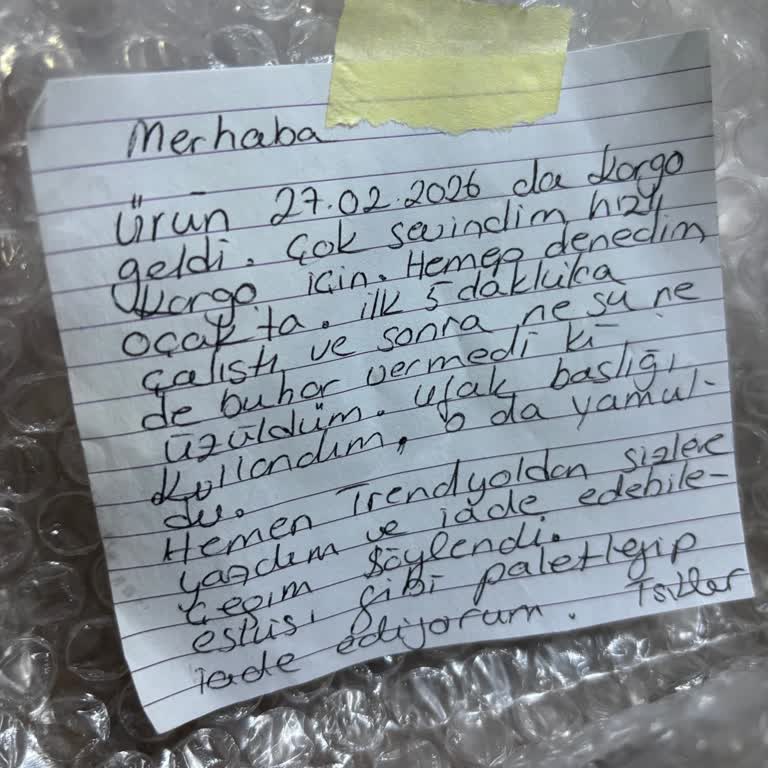 Merhaba
Ürün 27.02.2026 da kargo
geldi. Çok sevindim hızlı
kargo için. Hemen denedim
ocak ta. ilk 5 dakluka
çalıştı ve sonra ne su ne
de buhar vermedi ki
üzüldüm. Ufak başlığı
kullandım, o da yamul-
du.
Hemen Trendyoldan sizlere
yazdım ve iade edebile-
ceğim söylendi.
eskisi gibi paletleyip
iade ediyorum. Tşkler